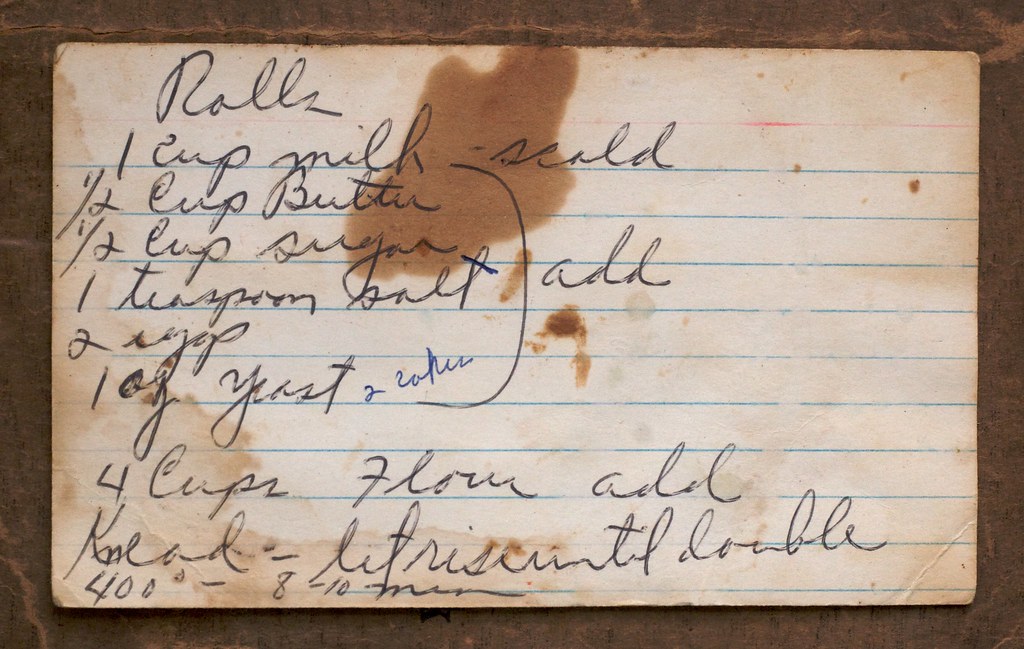 Rolls
1 Cup milk - scald
1/2 Cup Butter
1/2 Cup sugar
1 teaspoon salt add
2 eggs
1 oz yeast 2 cakes
4 Cups Flour add
Knead - let rise until double
400° - 8-10 min